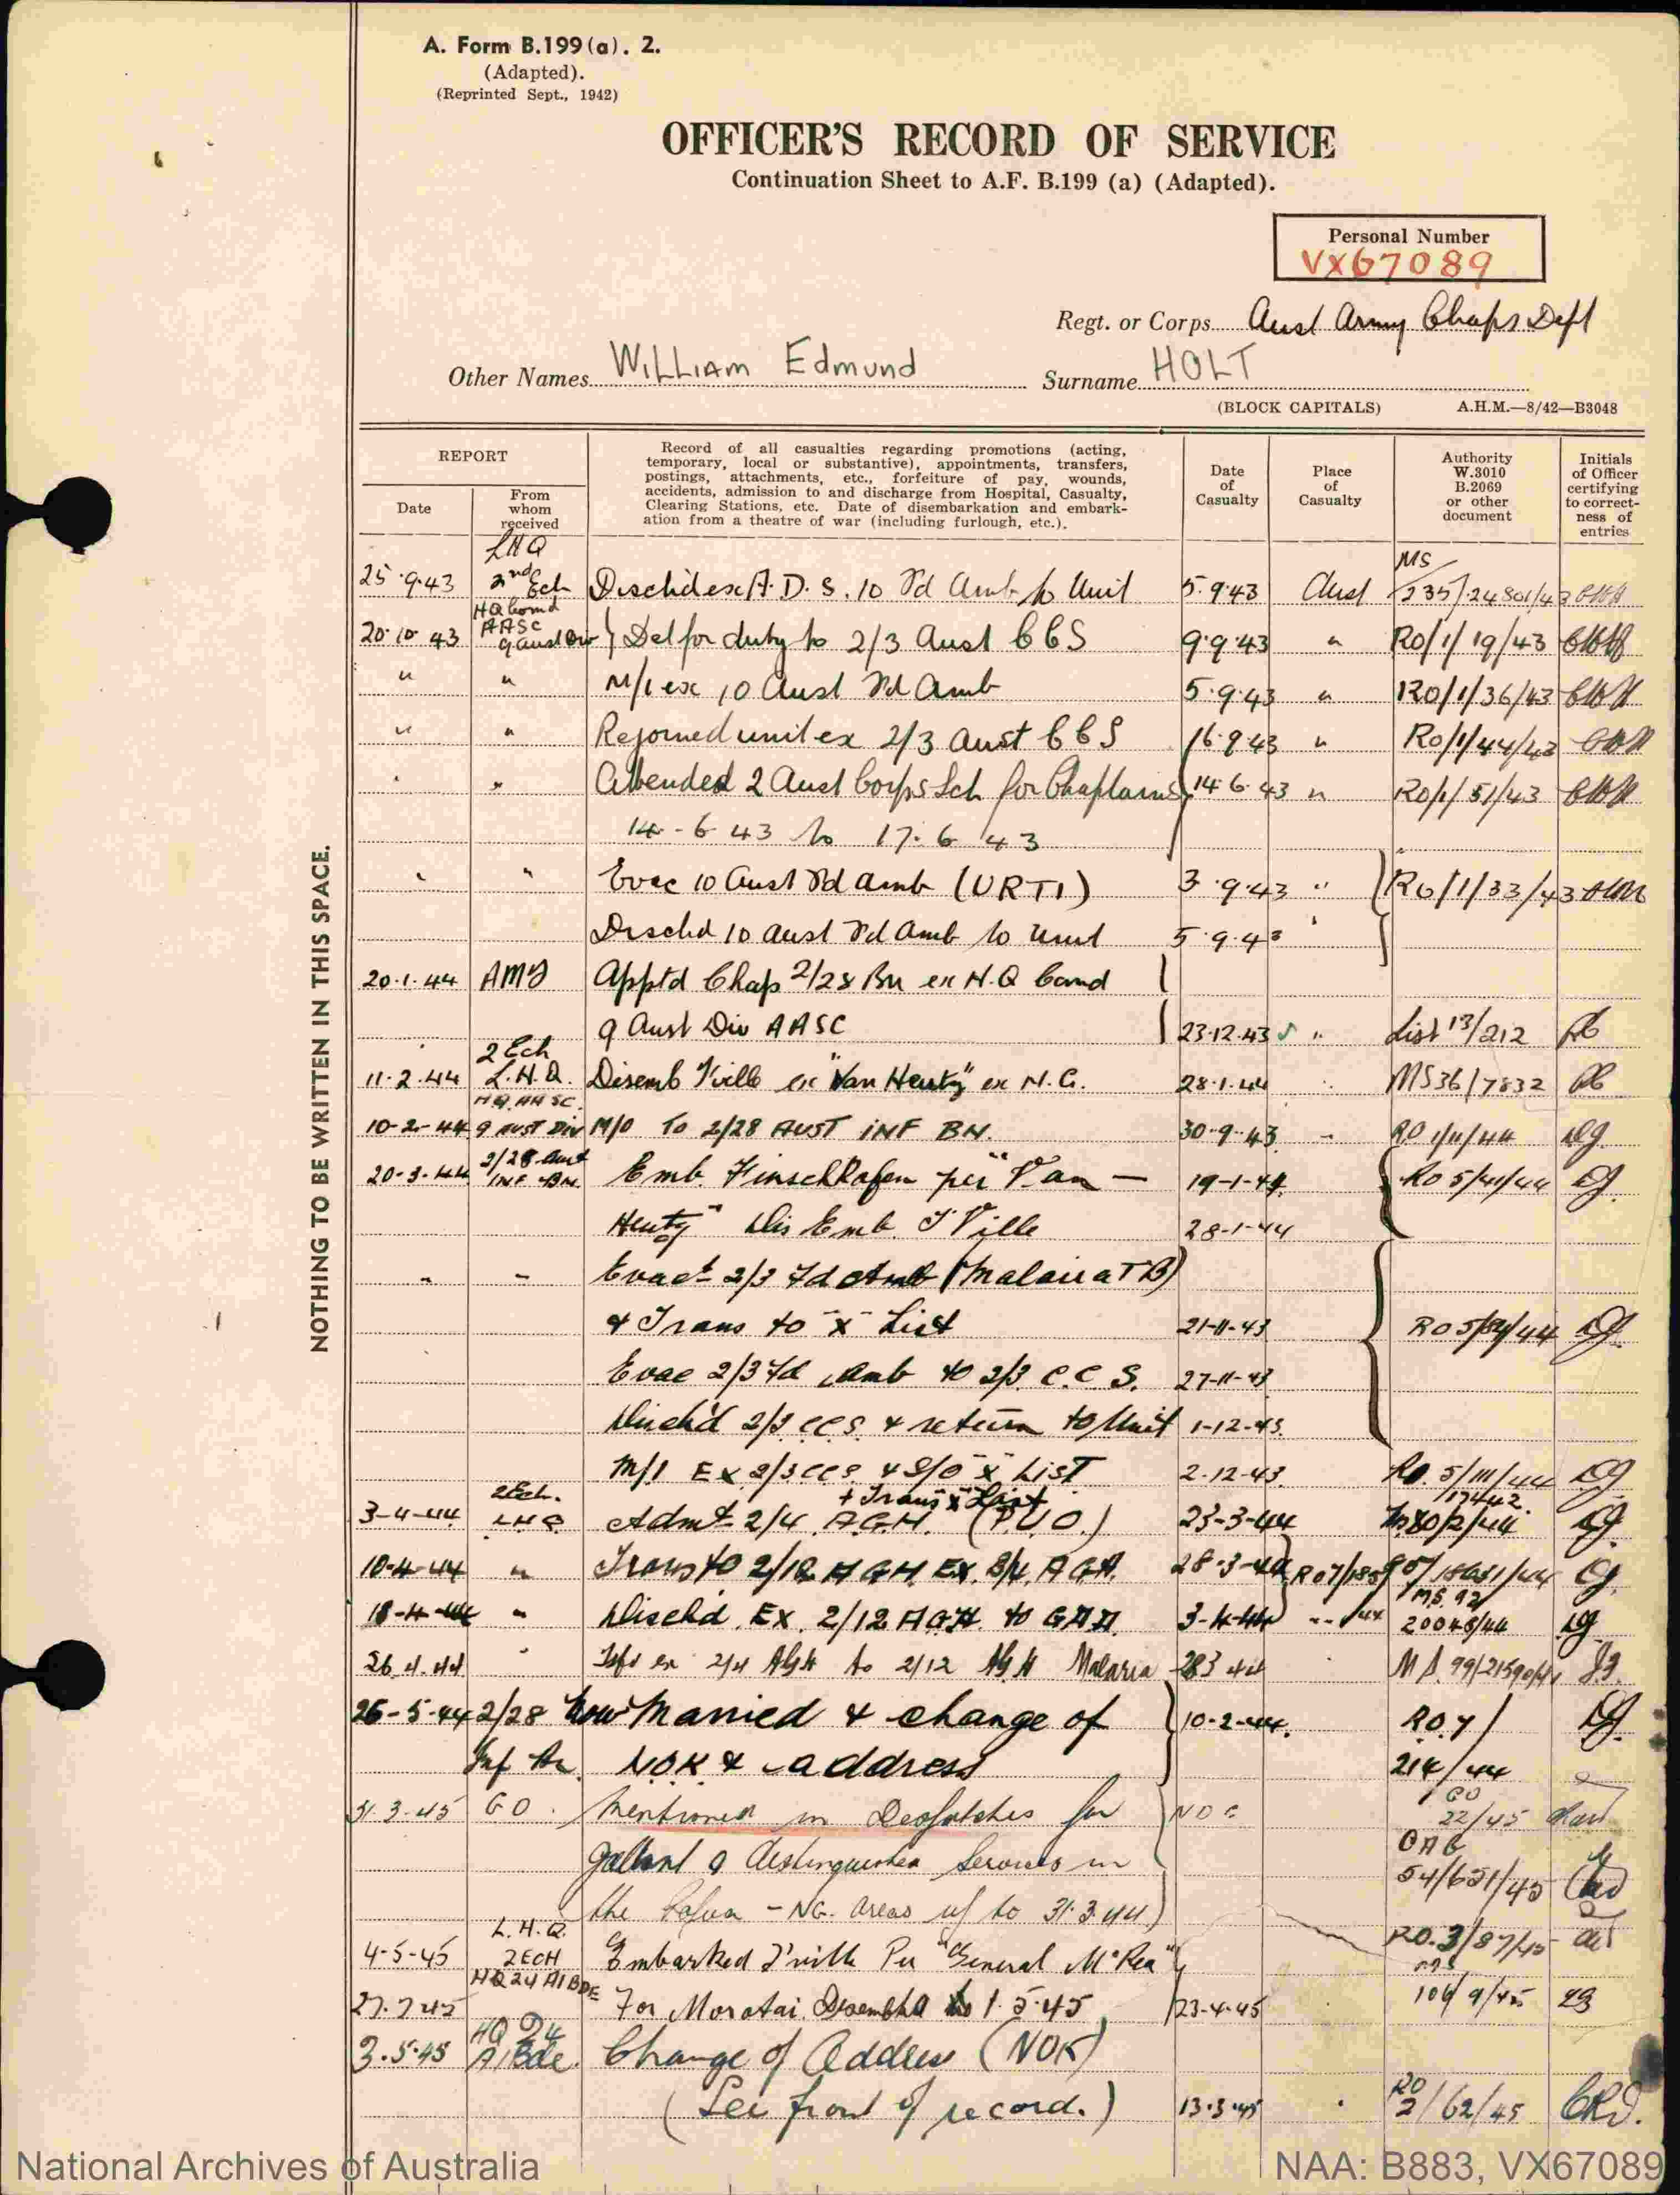 A. Form B.199(a). 2.
(Adapted).
(Reprinted Sept., 1942)
OFFICER'S RECORD OF SERVICE
Continuation Sheet to A.F. B.199 (a) (Adapted).
Personal Number
VX67089
Regt. or Corps Aust Army Chaps Dept
Other Names William Edmund Surname HOLT
(BLOCK CAPITALS) A.H.M.—8/42—B3048
NOTHING TO BE WRITTEN IN THIS SPACE.
REPORT
Date
From whom received
Record of all casualties regarding promotions (acting,
temporary, local or substantive), appointments, transfers,
postings, attachments, etc., forfeiture of pay, wounds,
accidents, admission to and discharge from Hospital, Casualty,
Clearing Stations, etc. Date of disembarkation and embark-
ation from a theatre of war (including furlough, etc.).
Date of Casualty
Place of Casualty
Authority W.3010 B.2069 or other document
Initials of Officer certifying to correct-ness of entries
LHQ MS
25.9.43 2nd Ech Dischd ex A.D.S. 10 Fd Amb to Unit 5.9.43 Aust 235/24801/43
HQ Comd AASC
20.10.43 9 Aust Div Det for duty to 2/3 Aust CCS 9.9.43 " RO/1/19/43
" " M/I ex 10 Aust Fd Amb 5.9.43 " RO/1/36/43
" " Rejoined unit ex 2/3 Aust CCS 16.9.43 " RO/1/44/43
" " Attended 2 Aust Corps Sch for Chaplains 14.6.43 " RO/1/51/43
14-6-43 to 17.6.43
" " Evac 10 Aust Fd Amb (URTI) 3.9.43 " RO/1/33/43
Dischd 10 Aust Fd Amb to Unit 5.9.43 "
20.1.44 AMS Apptd Chap 2/28 Bn ex H.Q Comd
9 Aust Div AASC 23.12.43 " List 13/212
2 Ech
11.2.44 L.H.Q. Disemb T'ville ex "Van Heutz" ex N.G. 28.1.44 " MS36/7832
HQ AASC
10-2-44 9 AUST DIV M/O To 2/28 AUST INF BN. 30.9.43 " RO 1/11/44
2/28 Aust
20-3-44 INF BN. Emb. Finschhafen per "Van — 19-1-44 RO 5/41/44
Heutz" Dis Emb. T'Ville 28-1-44
" " Evact 2/3 Fd Amb (Malaria TB)
& Trans to "X" List 21-11-43 RO 5/84/44
Evac 2/3 Fd Amb to 2/3 C.C.S. 27-11-43
Disch'd 2/3 CCS & return to Unit 1-12-43
M/I Ex 2/3 CCS & S/O "X" List 2-12-43 RO. 5/111/44
2 Ech. + Trans "X" List 17442
3-4-44 LHQ Admt 2/4 A.G.H. (P.U.O.) 23-3-44
10-4-44 " Trans to 2/12 AGH Ex. 2/4 AGH. 28-3-44
MS 92/
18-4-44 " Dischd. Ex. 2/12 AGH to GDD 3-4-44 20048/44
26.4.44 " Tsfd ex 2/4 AGH to 2/12 AGH Malaria 28 3 44 MS. 99/21590/44
26-5-44 2/28 Now Married & change of 10-2-44. RO 7/
Inf Bn NOK & address 214/44
31.3.45 GO. Mentioned in Despatches for GO 22/45
gallant & distinguished services in CAG 54/651/45
the Papua - NG. areas up to 31.3.44)
L.H.Q. RO.3/87/45
4-5-45 2ECH Embarked T'ville Per "General McRea"
HQ 24 AI BDE
27.7.45 For Morotai. Disembkd 1.5.45 23-4-45
HQ 24
3.5.45 AI Bde. Change of Address (NOK)
(See front of record.) 13.3.45 RO 2/62/45 CRD.
National Archives of Australia NAA: B883, VX67089